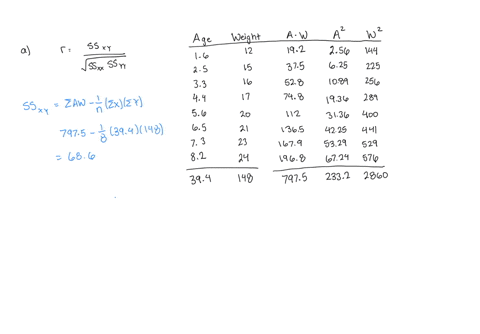 a) r = SS_XY / √(SS_XX SS_YY)
SS_XY = ΣAW - 1/n (ΣX)(ΣY)
797.5 - 1/8 (39.4)(148)
= 68.6
Age Weight A·W A² W²
1.6 12 19.2 2.56 144
2.5 15 37.5 6.25 225
3.3 16 52.8 10.89 256
4.4 17 74.8 19.36 289
5.6 20 112 31.36 400
6.5 21 136.5 42.25 441
7.3 23 167.9 53.29 529
8.2 24 196.8 67.24 576
39.4 148 797.5 233.2 2860